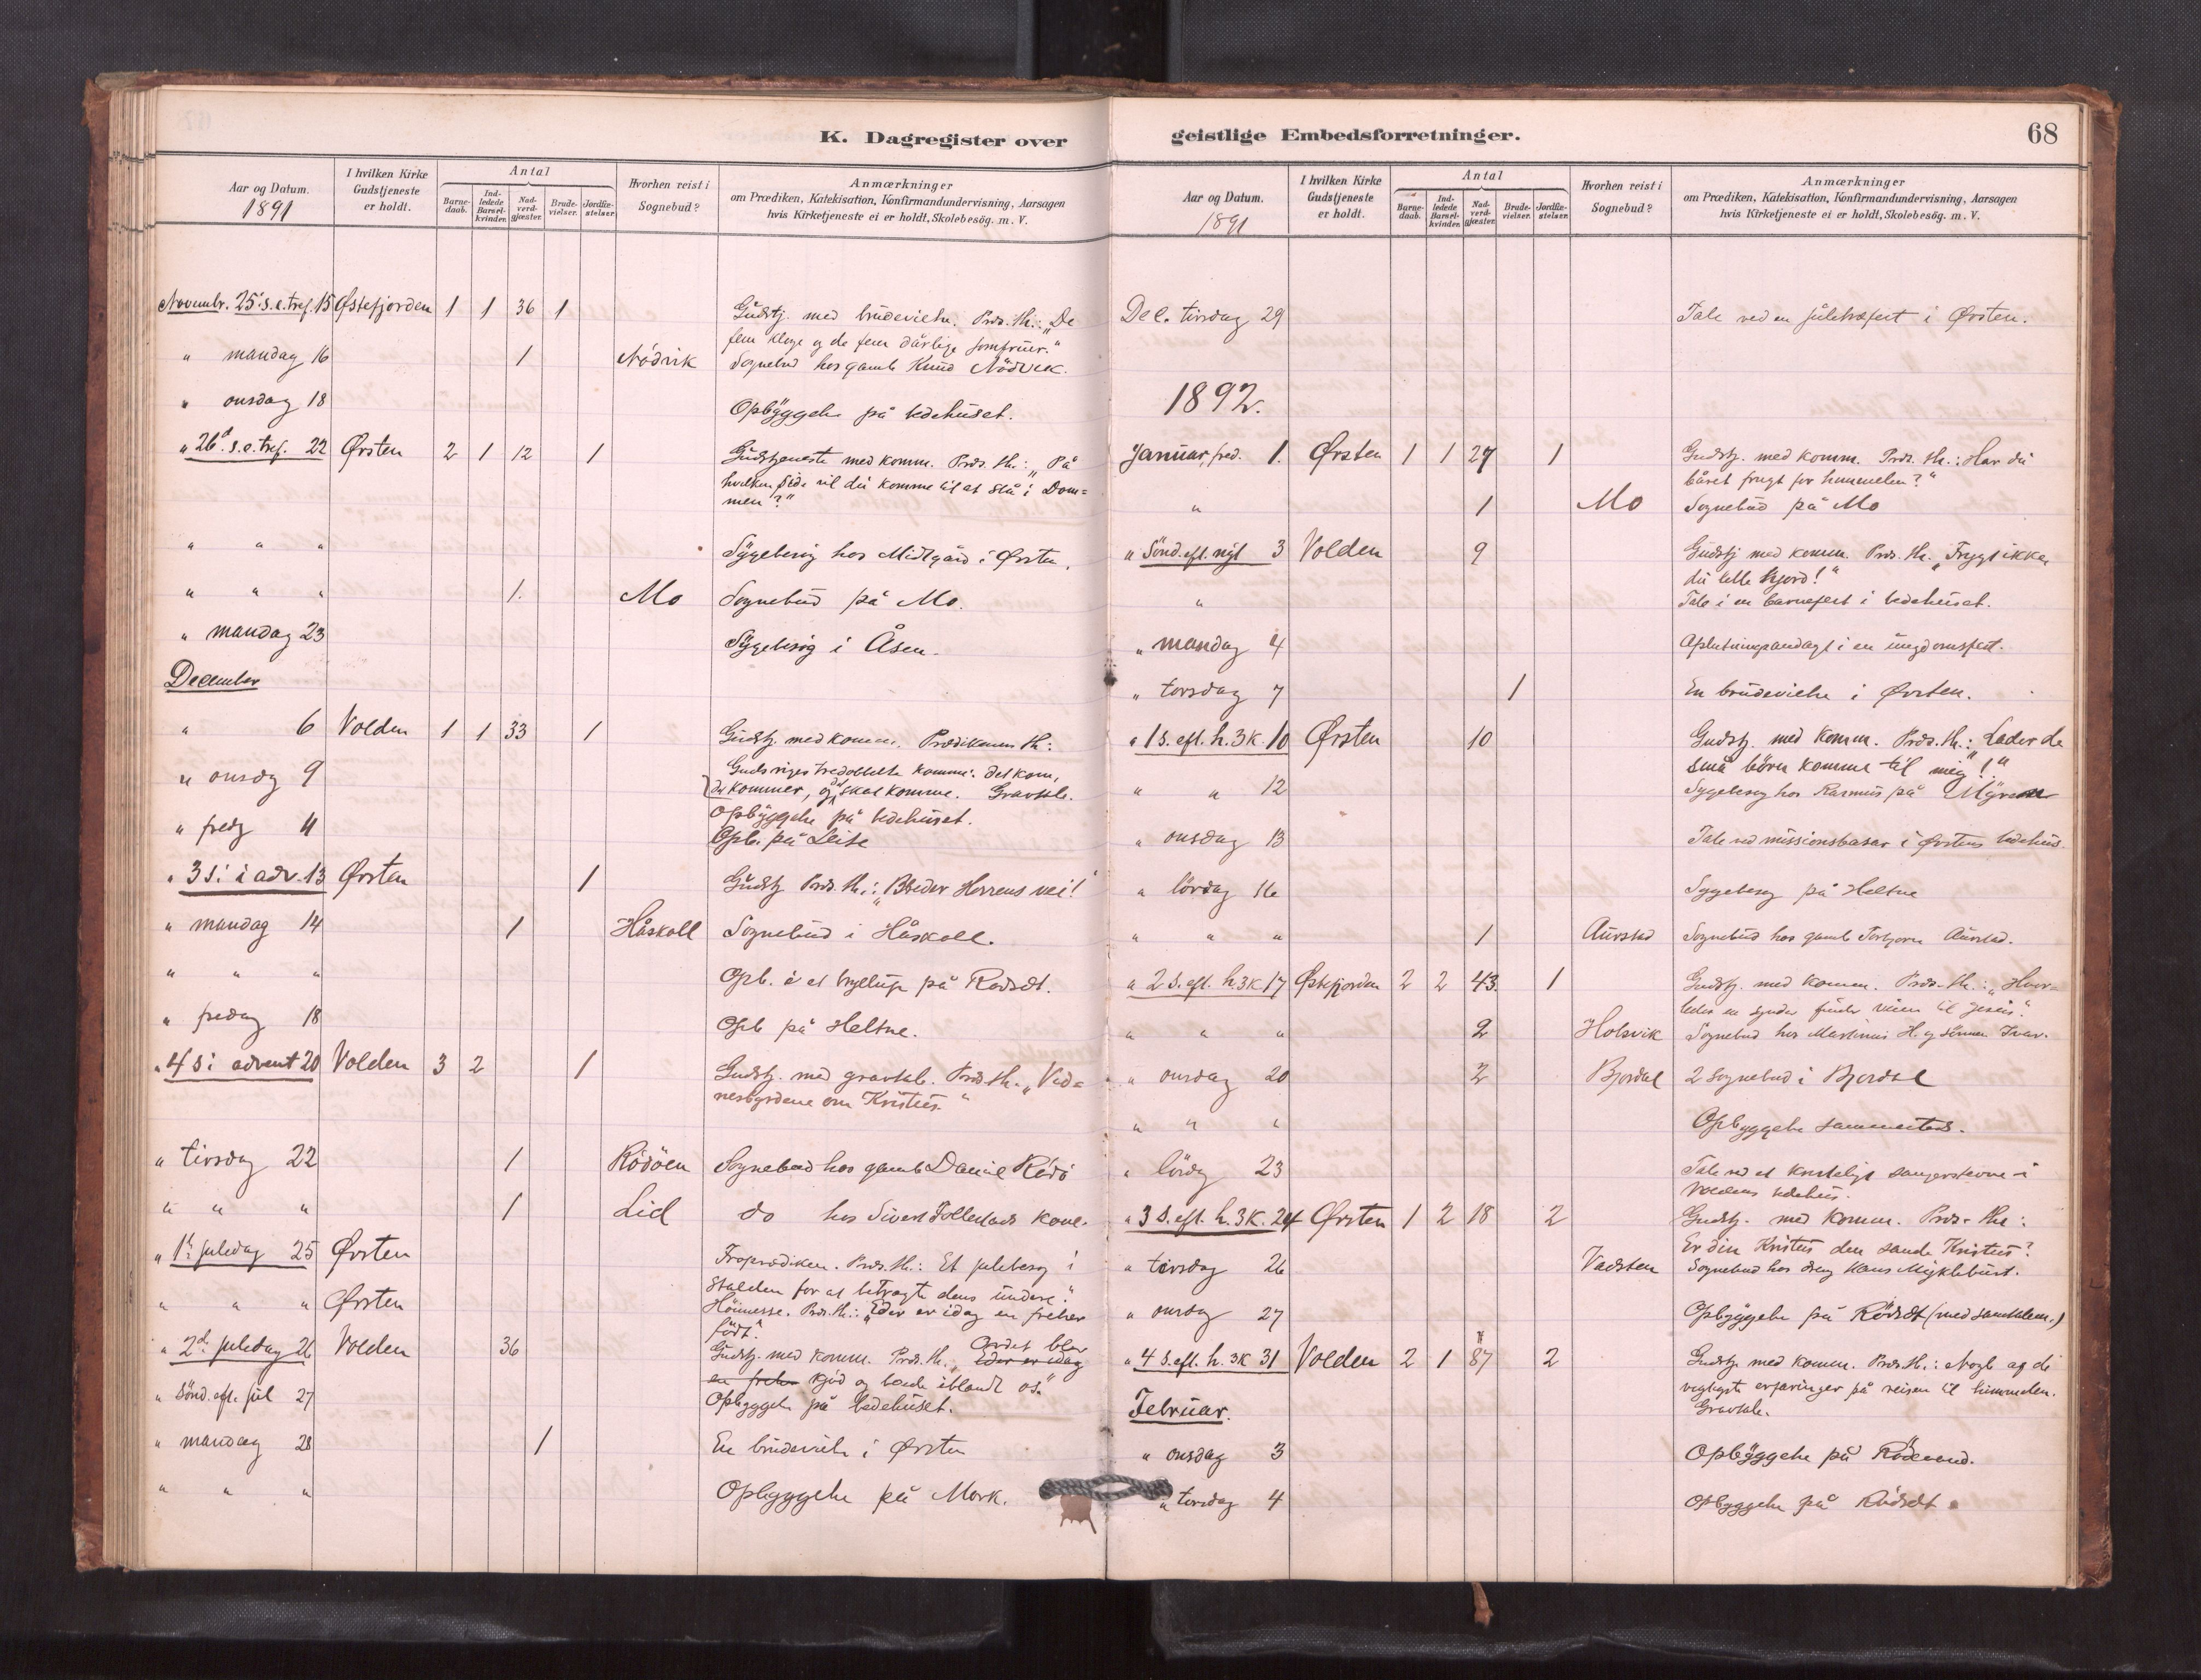 K. Dagregister over
Aar og Datum.
1891
I hvilken Kirke
Gudstjeneste
er holdt.
Antal
Barne-
daab.
Ind-
ledede
Barsel-
kvinder.
Nad-
verd-
gjæster.
Brude-
vielser.
Jordfæ-
stelser.
Hvorhen reist i
Sognebud?
Anmærkninger
om Prædiken, Katekisation, Konfirmandundervisning, Aarsagen
hvis Kirketjeneste ei er holdt, Skolebesög. m. V.
Novembr. 25 s.e.tref. 15 Østefjorden 1 1 36 1 Gudstj. med brudevielse. Præd. th.: „De
fem kloge og de fem dårlige jomfruer."
" mandag 16 1 Nödvik Sognebud hos gamle Knud Nödvik.
" onsdag 18 Opbyggelse på bedehuset.
" 26d s.e.tref. 22 Ørsten 2 1 12 1 Gudstjeneste med komm. Præd. th.: „På
hvilken side vil du komme til at stå i Dom=
men?"
" " " Sygebesög hos Midtgård i Ørsten.
" " " 1. Mo Sognebud på Mo.
" mandag 23 Sygebesög i Åsen.
December
" 6 Volden 1 1 33 1 Gudstj. med komm. Prædikenens th:
Guds riges tredobbelte komme: det kom,
det kommer, og det skal komme. Gravtale.
" onsdg 9 Opbyggelse på bedehuset.
" fredg 11 Opb. på Leite
" 3 s. i adv. 13 Ørsten 1 Gudstj Præd. th.: „Bereder Herrens vei!"
" mandag 14 1 Håskoll Sognebud i Håskoll.
" " " Opb. i et bryllup på Rödsæt.
" fredag 18 Opb på Heltne.
" 4 s i advent 20 Volden 3 2 1 Gudstj. med gravtale. Præd. th. „Vid=
nesbyrdene om Kristus."
" tirsdag 22 1 Rödöen Sognebud hos gamle Daniel Rödö
" " " 1 Lid do hos Sivert Follestads kone.
" 1ste juledag 25 Ørsten Froprædiken. Præd. th.: Et julebesög i
stalden for at betragte dens undere."
" " " Ørsten Höimesse. Præd. th.: „Eder er idag en frelser
födt."
" 2d. juledag 26 Volden 36 Gudstj. med komm. Præd. th. „Eder er idag Ordet blev
en frelser kjöd og boede iblandt os."
" Sönd. eft. jul 27 Opbyggelse på bedehuset.
" mandag 28 1 En brudevielse i Ørsten
" " " Opbyggelse på Mork.
geistlige Embedsforretninger.
68
Aar og Datum.
1891
I hvilken Kirke
Gudstjeneste
er holdt.
Antal
Barne-
daab.
Ind-
ledede
Barsel-
kvinder.
Nad-
verd-
gjæster.
Brude-
vielser.
Jordfæ-
stelser.
Hvorhen reist i
Sognebud?
Anmærkninger
om Prædiken, Katekisation, Konfirmandundervisning, Aarsagen
hvis Kirketjeneste ei er holdt, Skolebesög. m. V.
Dec. tirsdag 29 Tale ved en juletræfest i Ørsten.
1892.
Januar, fred. 1. Ørsten 1 1 27 1 Gudstj. med komm. Præd. th.: Har du
båret frugt for himmelen?"
" 1 Mo Sognebud på Mo
" Sönd. eft. nyt 3 Volden 9 Gudstj med komm. Præd. th. „Frygt ikke
du lille hjord!"
" Tale i en barnefest i bedehuset.
" mandag 4 Afslutningsandagt i en ungdomsfest.
" torsdag 7 1 En brudevielse i Ørsten.
" 1 s. eft. h. 3 K. 10 Ørsten 10 Gudstj. med komm. Præd. th.: „Lader de
små børn komme til mig!"
" " 12 Sygebesög hos Rasmus på Myren
" onsdag 13 Tale ved missionsbasar i Ørstens bedehus.
" lördag 16 Sygebesög på Heltne
" " " 1 Aurstad Sognebud hos gamle Torbjørn Aurstad.
" 2 s. eft. h. 3 K 17 Østefjorden 2 2 43. 1 Gudstj. med komm. Præd. th.: „Hvor-
ledes en synder finder veien til Jesus."
" " " 2 Holsvik Sognebud hos Martinus H. og sönnen Ivar.
" onsdag 20 2 Bjørdal 2 sognebud i Bjørdal
" " " Opbyggelse sammesteds.
" lördg 23 Tale ved et kristeligt sangerstevne i
Voldens bedehus.
" 3 S. eft. h. 3 K. 24 Ørsten 1 2 18 2 Gudstj. med komm. Præd. th:
Er din Kristus den sande Kristus?
" tirsdag 26 Vadsten Sognebud hos dreng Hans Myklebust.
" onsdag 27 Opbyggelse på Rödsæt (med samtalem.)
" 4 S. eft. h. 3K 31 Volden 2 1 87 2 Gudstj. med komm. Præd. th.: Nogle af de
vigtigste erfaringer på reisen til himmelen.
Gravtale.
Februar.
" onsdag 3 Opbyggelse på Rödsæt
" torsdag 4 Opbyggelse på Rödsæt